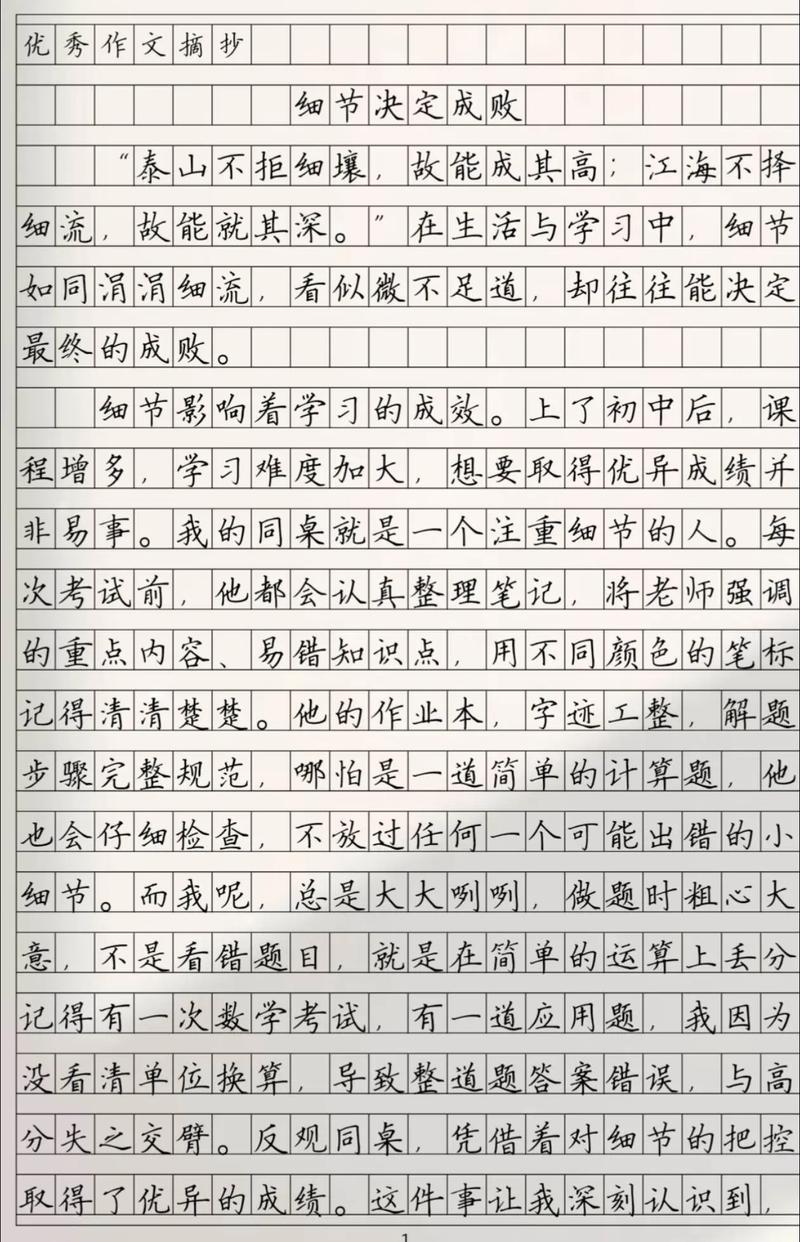 优秀作文摘抄
细节决定成败
“泰山不拒细壤，故能成其高；江海不择
细流，故能就其深。”在生活与学习中，细节
如同涓涓细流，看似微不足道，却往往能决定
最终的成败。
细节影响着学习的成效。上了初中后，课
程增多，学习难度加大，想要取得优异成绩并
非易事。我的同桌就是一个注重细节的人。每
次考试前，他都会认真整理笔记，将老师强调
的重点内容、易错知识点，用不同颜色的笔标
记得清清楚楚。他的作业本，字迹工整，解题
步骤完整规范，哪怕是一道简单的计算题，他
也会仔细检查，不放过任何一个可能出错的小
细节。而我呢，总是大大咧咧，做题时粗心大
意，不是看错题目，就是在简单的运算上丢分
记得有一次数学考试，有一道应用题，我因为
没看清单位换算，导致整道题答案错误，与高
分失之交臂。反观同桌，凭借着对细节的把控
取得了优异的成绩。这件事让我深刻认识到，
1